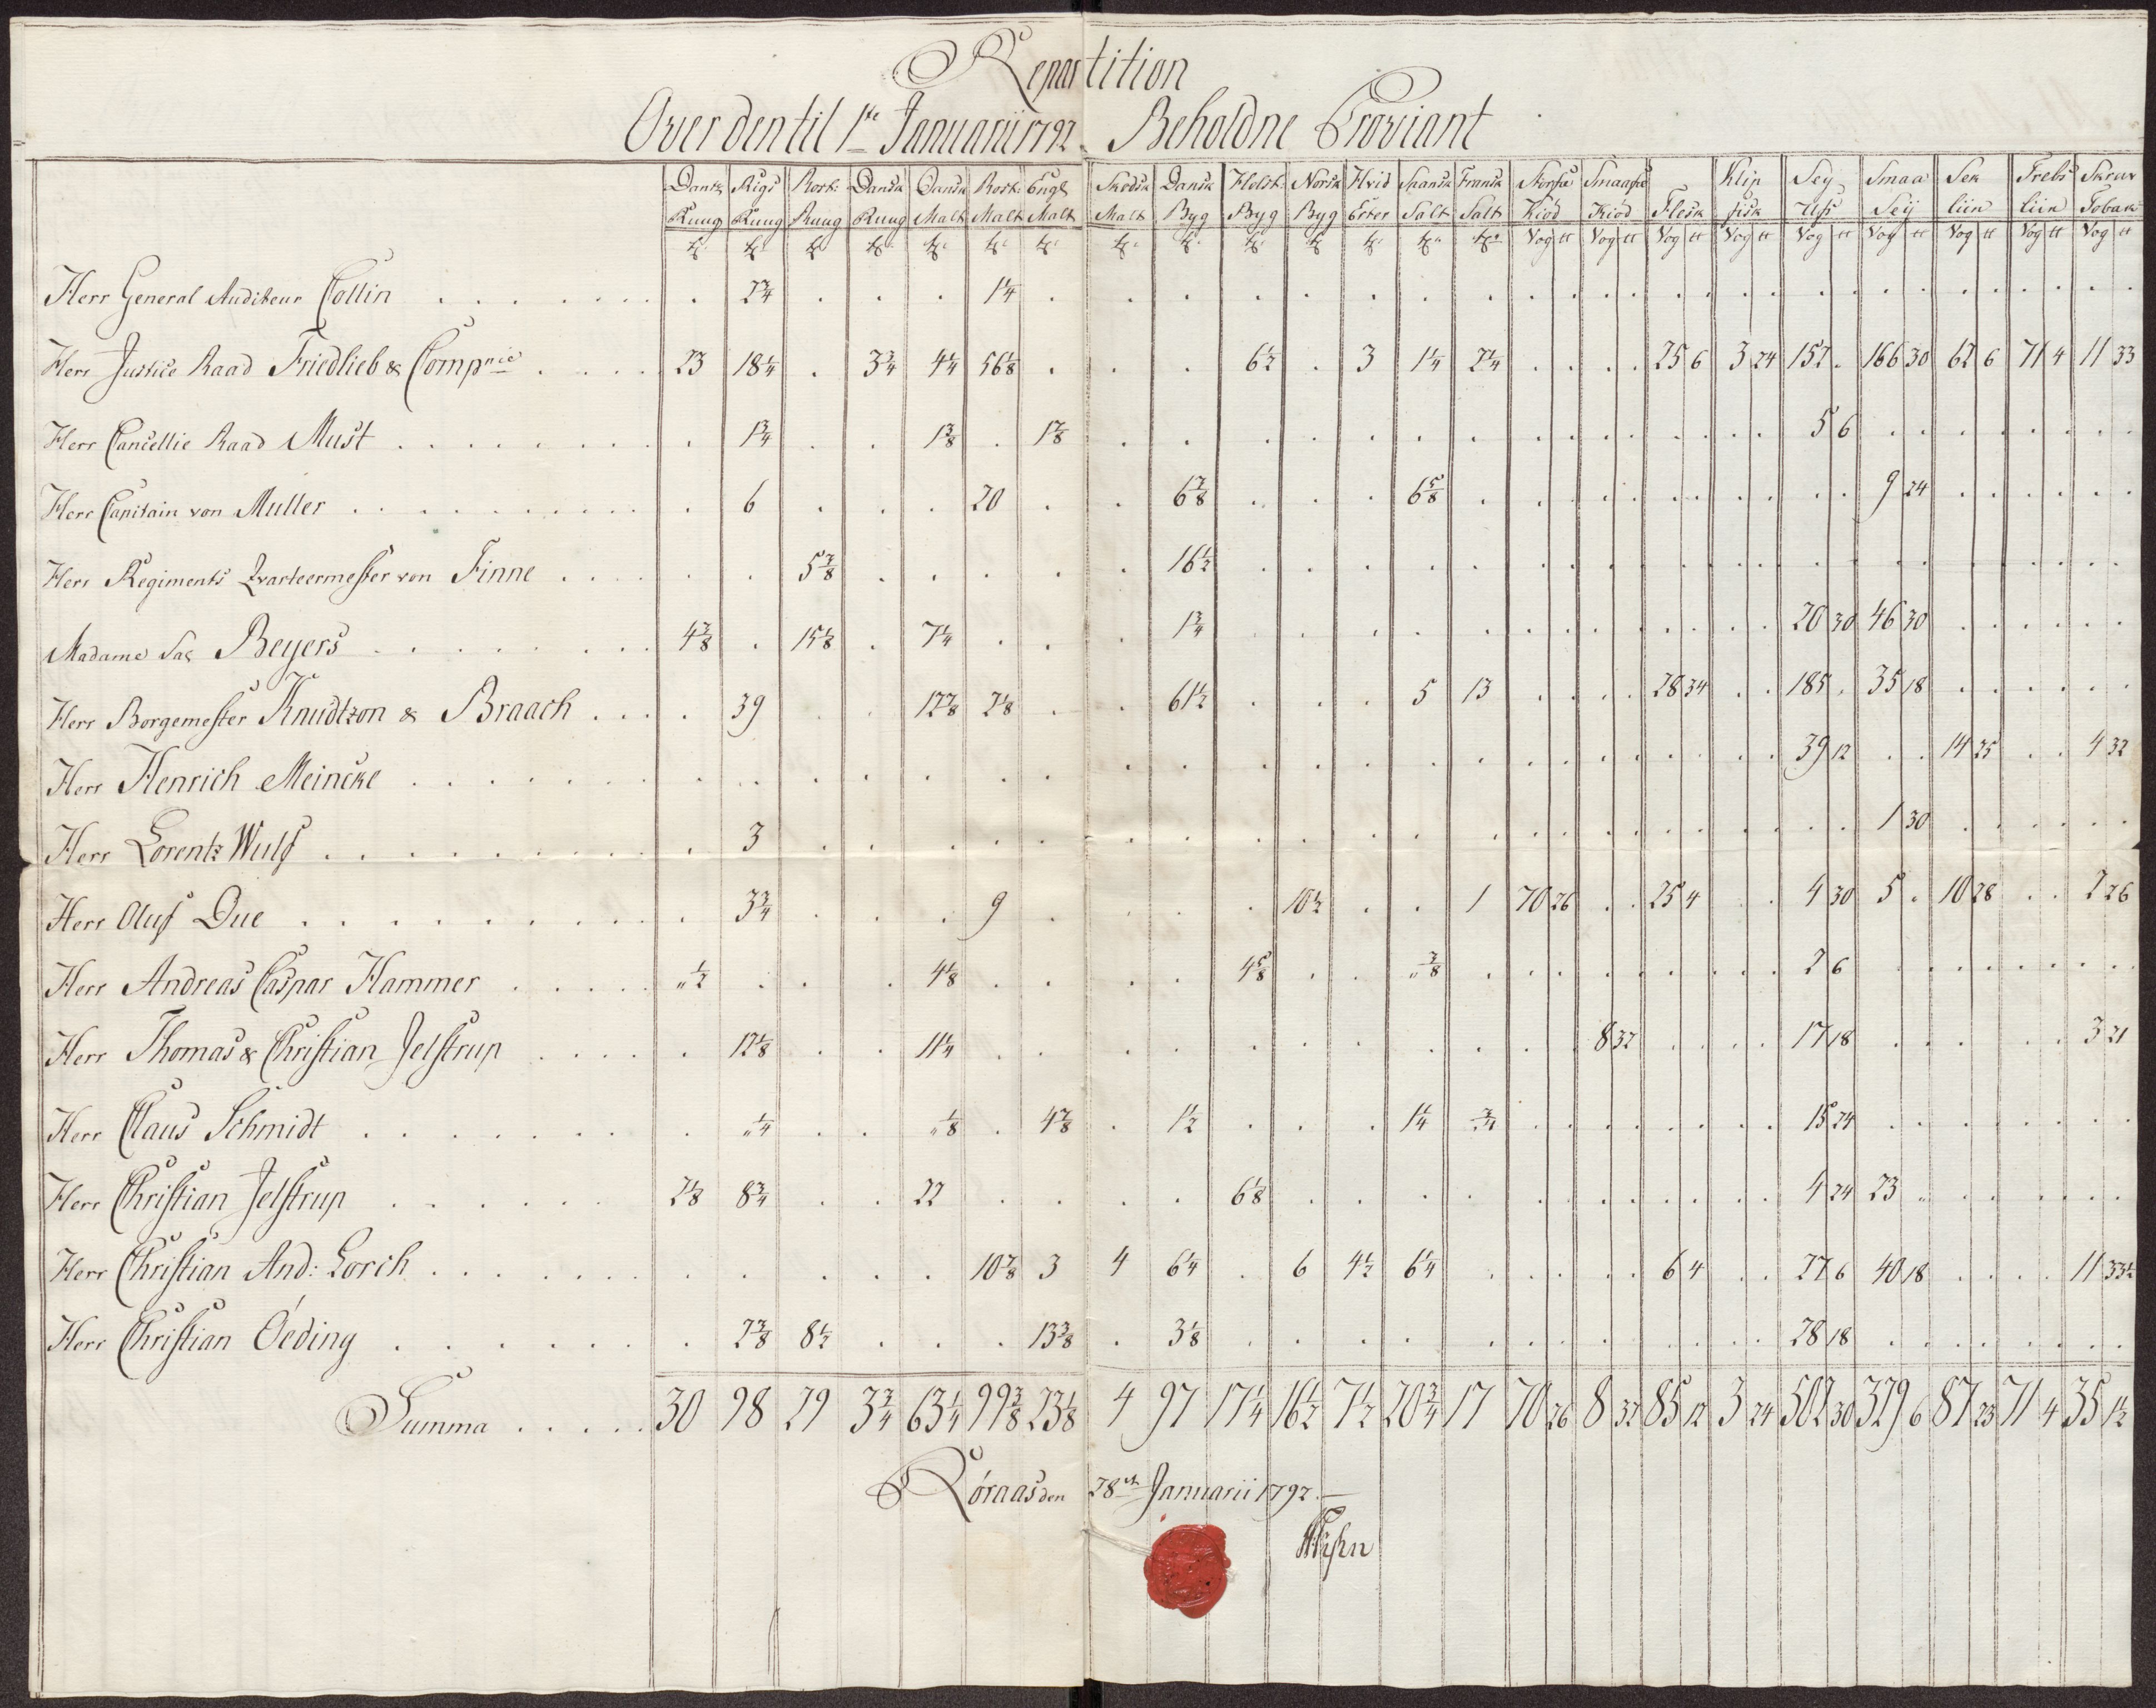 Repartition
Over den til 1ste Januarii 1792 Beholdne Proviant
Dantz Rigs Rost: Dansk Dansk Rost: Engl Skodsk Dansk Holst: Norsk Hvid Spansk Fransk Storfæ Smaafæ Klip Sey Smaa Sek Trebs Skruv
Ruug Ruug Ruug Ruug Malt Malt Malt Malt Byg Byg Byg Erter Salt Salt Kiöd Kiöd Flesk fisk Ufs Seÿ liin liin Tobak
Vog tt Vog tt Vog tt Vog tt Vog tt Vog tt Vog tt Vog tt Vog tt
Herr General Auditeur Collin . . . 2¾ . . . 1¼
Herr Justice Raad Friedlieb & Compnie . . . 23 18¼ . 3¾ 4¼ 56⅛ . . . 6½ . 3 1¼ 2¼ . . . . 25 6 3 24 152 . 166 30 62 6 71 4 11 33
Herr Cancellie Raad Must . . . 1¾ . . 1⅜ . 1⅞ . . . 5 6
Herr Capitain von Muller . . . 6 . . . 20 . . 6⅞ . . . 6⅝ . . . 9 24
Herr Regiments Qvarteermester von Finne . . . 5⅜ . . . 16½
Madame Sal Beyers . . . 4⅜ . 15⅛ . 7¼ . . . 1¾ . . . 20 30 46 30
Herr Borgemester Knudtzon & Braach . . . 39 . . 12⅞ 2⅛ . . 61½ . . . 5 13 . . . . 28 34 . . 185 . 35 18
Herr Henrich Meincke . . . 39 12 . . 14 25 . . 4 32
Herr Lorentz Wulf . . . 3 . . . 1 30
Herr Oluf Due . . . 3¾ . . . 9 . . . . 10½ . . 1 70 26 . . 25 4 . . 4 30 5 . 10 28 . . 2 26
Herr Andreas Caspar Hammer . . . „½ . . . 4⅛ . . . . 4⅝ . . „⅞ . . . 2 6
Herr Thomas & Christian Jelstrup . . . 12⅛ . . 11¼ . . . 8 32 . . . . 17 18 . . . 3 21
Herr Claus Schmidt . . . „¼ . . „⅛ . 4⅞ . 1½ . . . 1¼ „¾ . . . 15 24
Herr Christian Jelstrup . . . 2⅛ 8¾ . . 22 . . . . 6⅛ . . . 4 24 23 „
Herr Christian And: Lorch . . . 10⅞ 3 4 6¼ . 6 4½ 6¼ . . . 6 4 . . 27 6 40 18 . . . . 11 33½
Herr Christian Öeding . . . 2⅜ 8½ . . . 13⅜ . 3⅛ . . . 28 18
Summa . . . . . 30 98 29 3¾ 63¼ 99⅜ 23⅛ 4 97 17¼ 16½ 7½ 20¾ 17 70 26 8 32 85 12 3 24 502 30 329 6 87 23 71 4 35 1½
Röraas den 28de Januarii 1792.